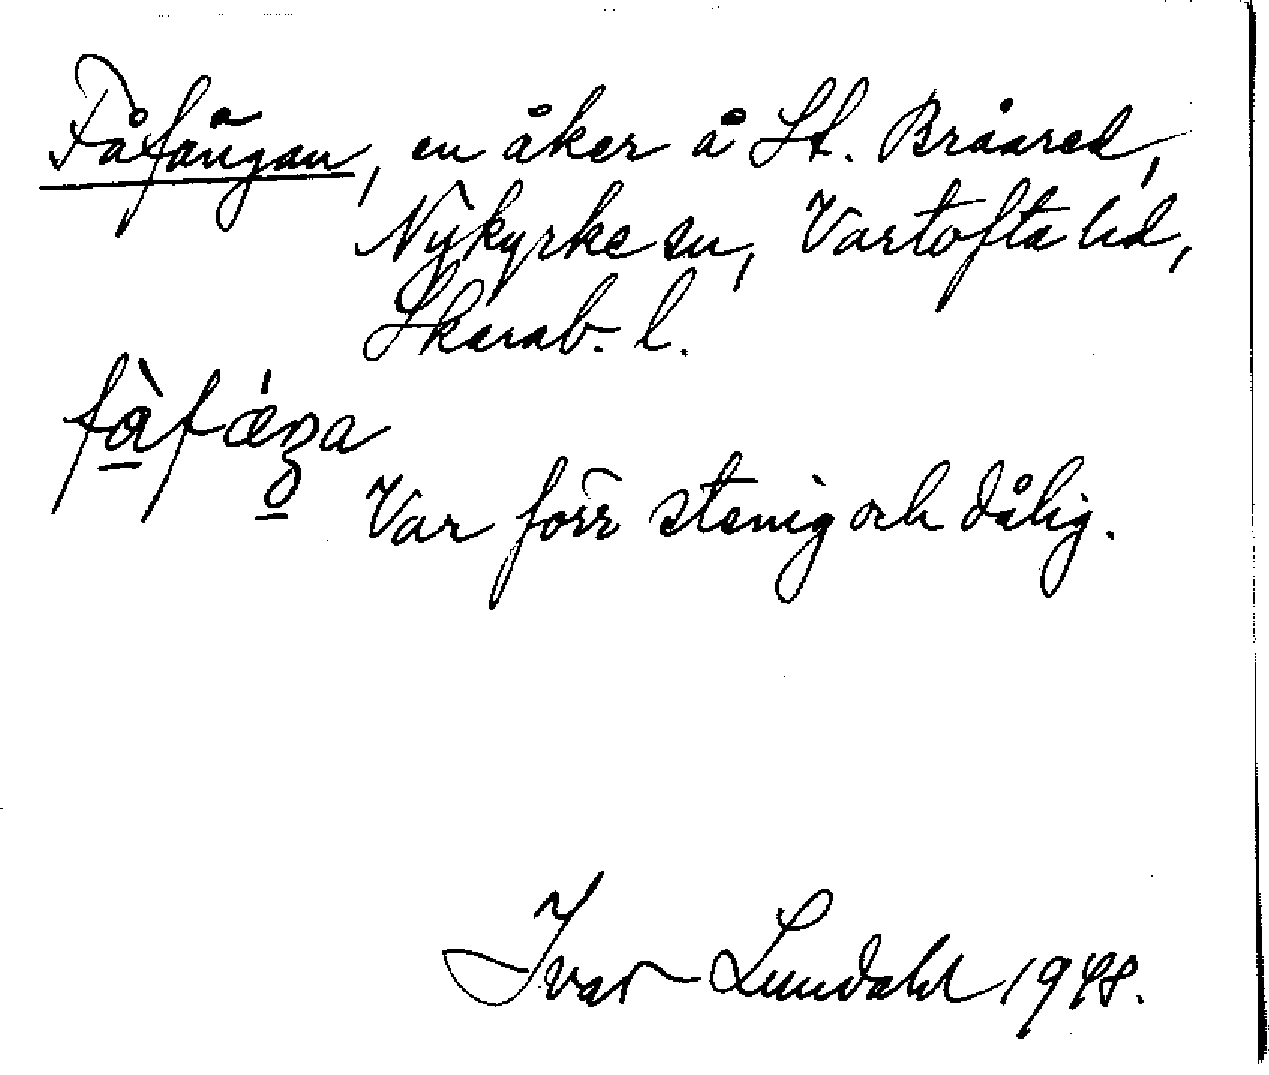 Fåfängan, en åker å St. Bråared,
Nykyrke sn, Vartofta hd,
Skarab. l.
fàfæŋa
Var förr stenig och dålig.
Ivar Lundahl 1948.